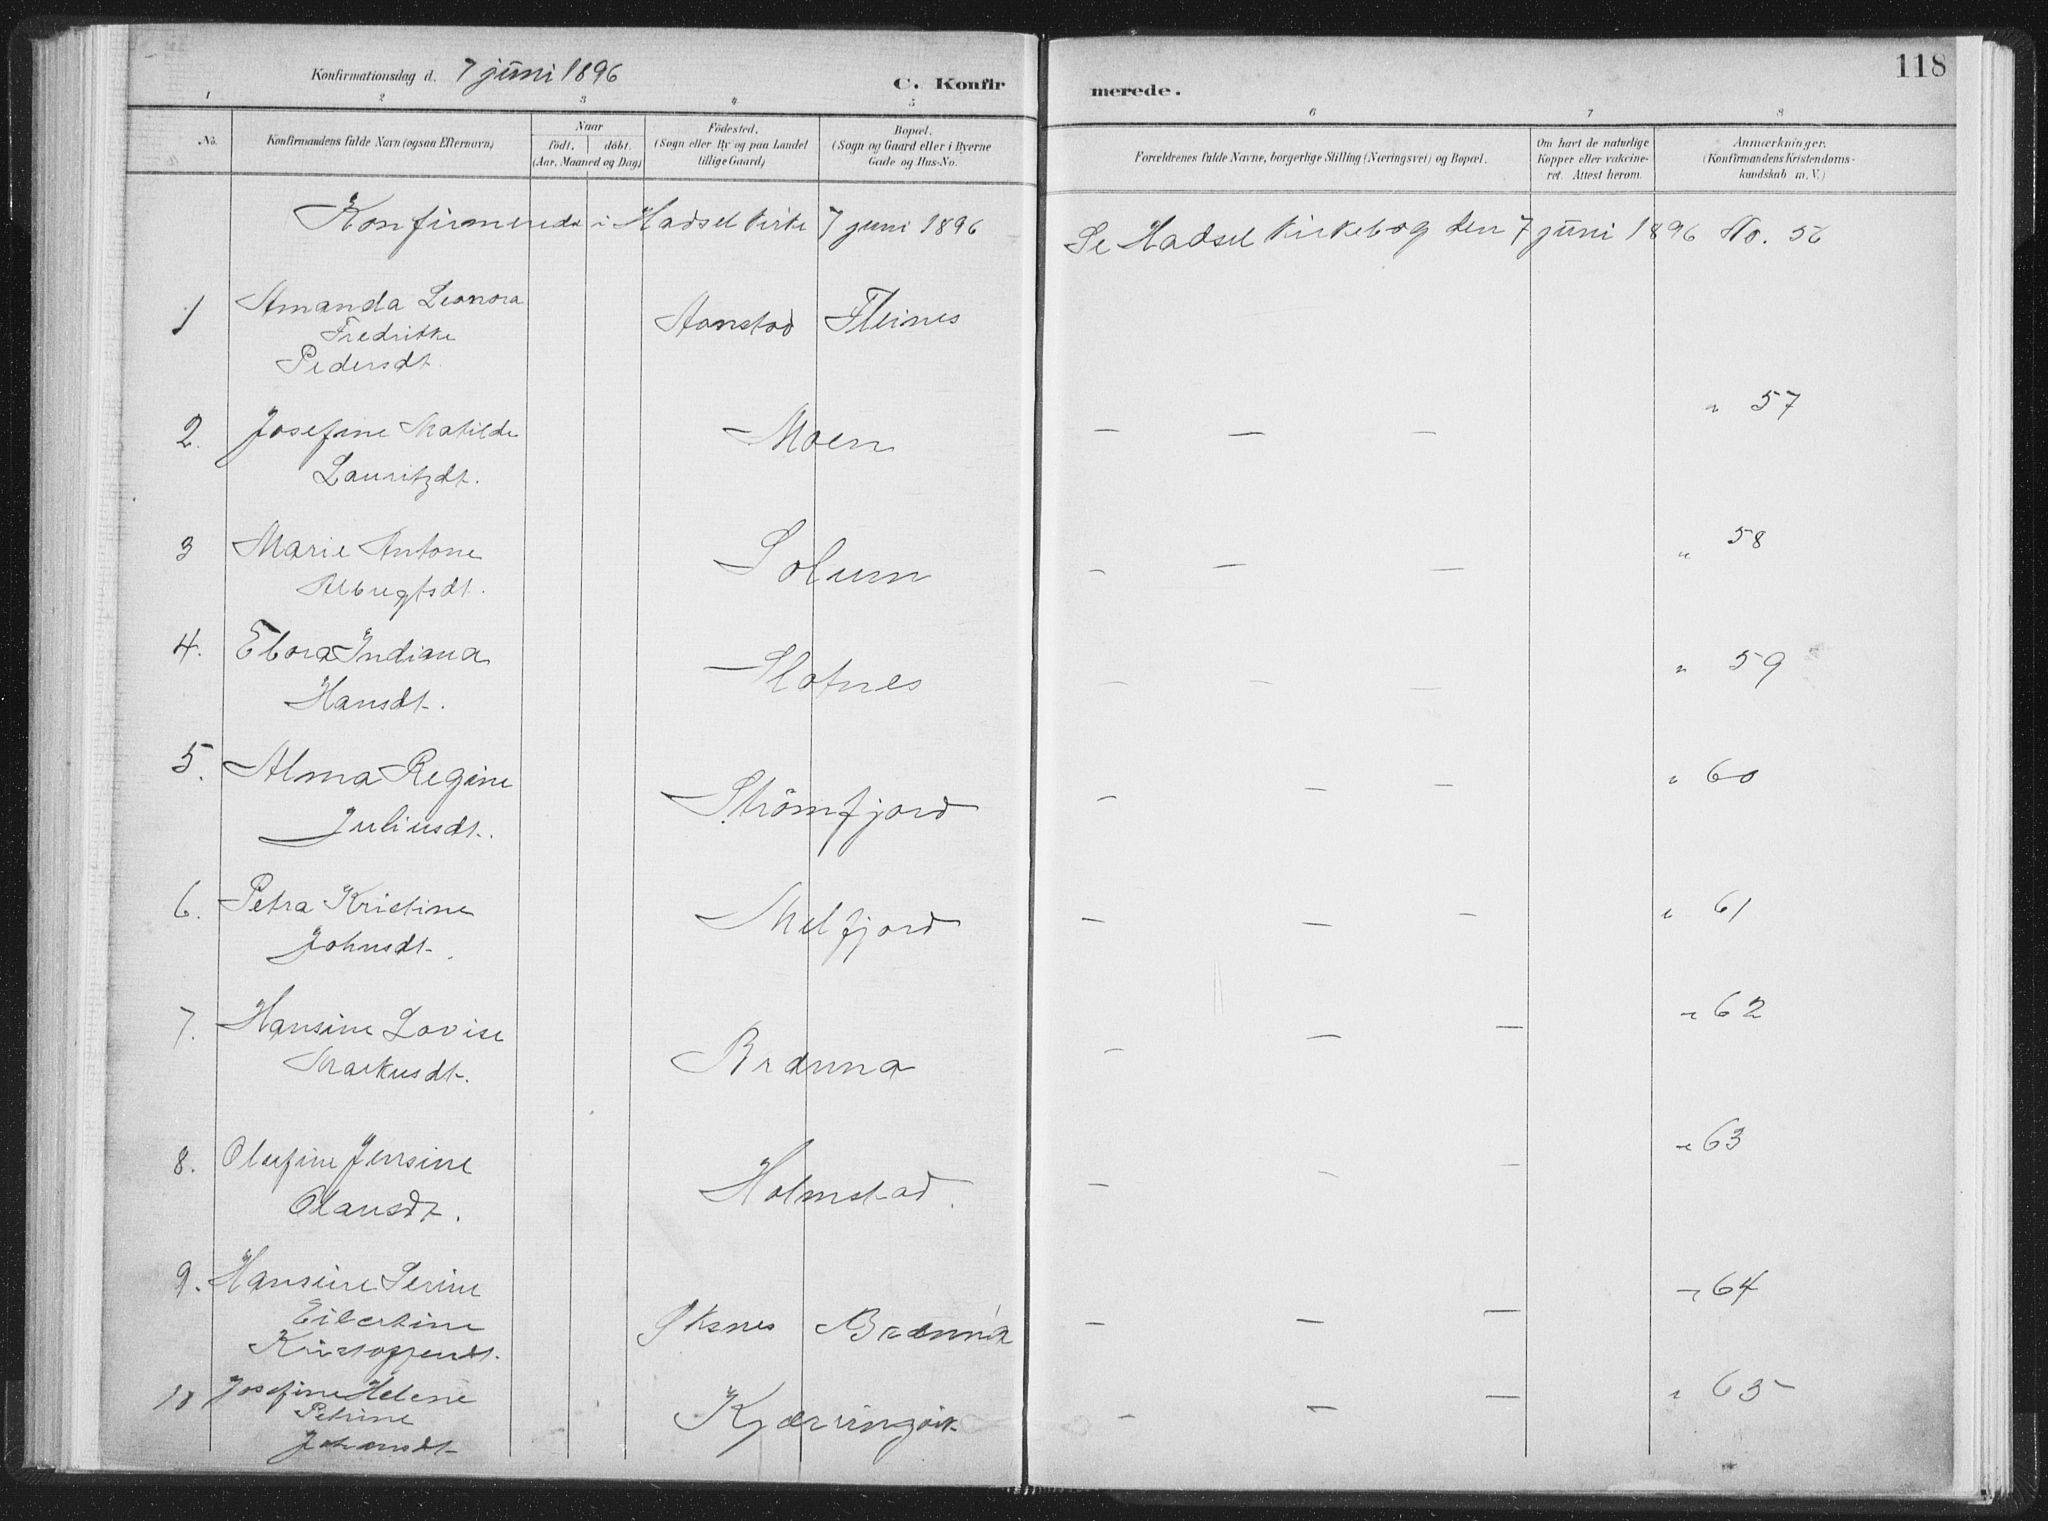 118
Konfirmationsdag d. 7 juni 1896
C. Konfir
merede.
1 2 3 4 5 6 7 8
No.
Konfirmandens fulde Navn (ogsaa Efternavn)
Naar
födt. döbt.
(Aar, Maaned og Dag)
Födested.
(Sogn eller By og paa Landet
tillige Gaard)
Bopæl.
(Sogn og Gaard eller i Byerne
Gade og Hus-No.
Forældrenes fulde Navne, borgerlige Stilling (Næringsvei) og Bopæl.
Om havt de naturlige
Kopper eller vakcine-
ret. Attest herom.
Anmærkninger.
(Konfirmandens Kristendoms-
kundskab m. V.)
Konfirmerede i Hadsel kirke 7 juni 1896
Se Hadsel kirkebog den 7 juni 1896 No. 56
1 Amanda Leonora
Fredrikke
Pedersdt.
Aanstad Fleines
2. Josefine Matilde Moen — — — " 57
Lauritzdt.
3 Marie Antone Solum — — — " 58
Albregtsdt.
4. Ebora Indiana Slotnes — — — " 59
Hansdt.
5. Alma Regine Strömfjord — — — " 60
Juliusdt.
6. Petra Kristine Melfjord — — — " 61
Johnsdt.
7. Hansine Lovise Brænna — — — " 62
Markusdt.
8. Olufine Jensine Holmstad. — — — " 63
Olausdt.
9. Hansine Perine
Eilertine Øksnes Brænna — — — " 64
Kristoffersdt.
10 Josefine Helene Kjærringvik — — — " 65
Petrine
Johansdt